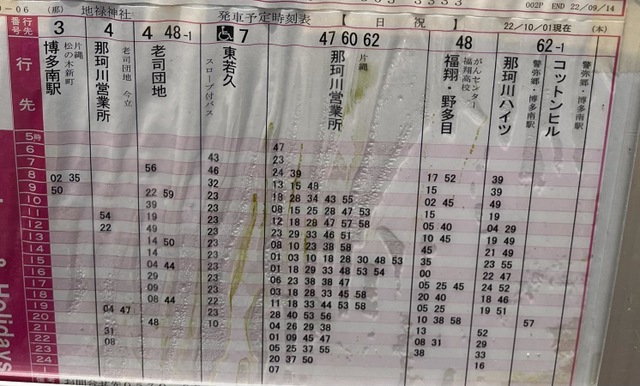 (那) 地禄神社 発車予定時刻表 【日 祝】 22/10/01現在 (木)
002P END 22/09/14
行先 3 4 4 48-1 ♿7 47 60 62 48 62-1
行先
博多南駅 松の木新町 片縄
那珂川営業所 老司団地 今立
老司団地
東若久 スロープ付バス
那珂川営業所 片縄
福翔・野多目 福翔高校 がんセンター
那珂川ハイツ
コットンヒル 警弥郷・博多南駅
警弥郷・博多南駅
5時
6 47
7 43 23
8 56 46 24 39
9 02 35 32 13 15 48 17 52 39
10 50 22 59 23 18 28 34 43 55 15 39
11 39 23 08 15 25 28 47 53 02 45 49
12 54 19 23 12 18 28 47 57 58 15 19
13 22 49 23 23 29 33 46 51 05 40 04 29
14 14 50 23 08 10 23 38 58 10 45 19 49
15 14 23 01 03 10 18 28 30 48 53 45 21 49
16 04 44 23 01 18 29 33 48 53 54 35 23 55
17 29 23 06 23 38 38 47 00 22 47
18 09 23 03 18 28 33 45 58 05 25 45 24 52
19 08 44 23 11 18 33 44 53 58 20 40 18 46
20 04 47 23 28 40 53 56 05 25 19 51
21 48 10 04 26 29 38 10 38 58 57
22 31 01 09 45 47 13 52
23 08 05 25 37 55 08 31 29
24 20 37 50 38 33
1 07 16
& Holidays